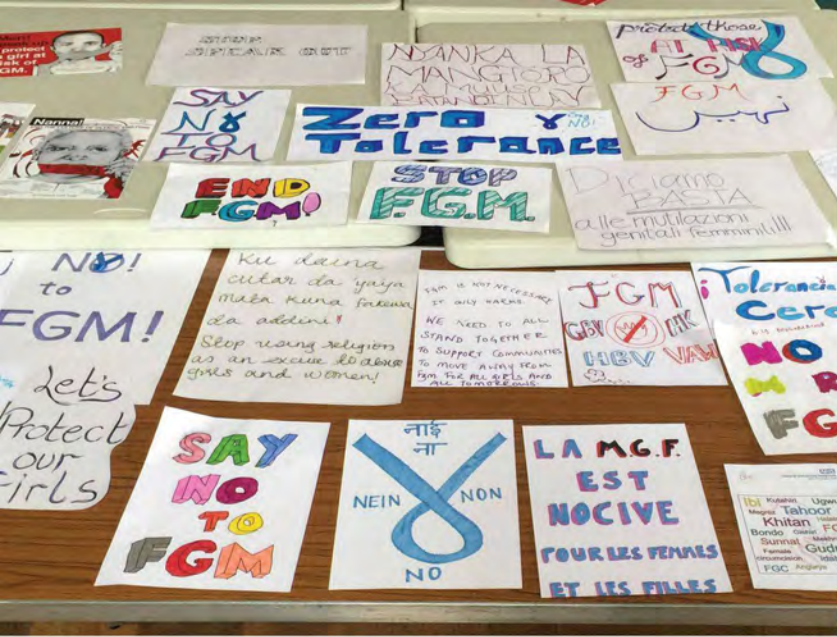 protect
a girl at
STOP
SPEAK OUT
NYANKA LA
MANGTORO
protect those
AT RISK
of FGM
FGM
نہیں
Nanna!
SAY
NO
TO
FGM
Zero
Tolerance
NO!
END
FGM!
STOP
F.G.M.
Diciamo
BASTA
alle mutilazioni
genitali femminili!!!
NO!
to
FGM!
Let's
Protect
our
Girls
Ku daina
cutar da yaya
mata kuna fakewa
da addini!
Stop using religion
as an excuse to abuse
girls and women!
FGM IS NOT NECESSARE
IT ONLY HARMS.
WE NEED TO ALL
STAND TOGETHER
TO SUPPORT COMMUNITIES
TO MOVE AWAY FROM
FGM FOR ALL GIRLS AND
ALL TOMORROWS.
FGM
GBV HK
HBV VAW
¡Tolerancia
Cero
NO
FG
SAY
NO
TO
FGM
नाहं
ना
NEIN NON
NO
LA M.G.F.
EST
NOCIVE
POUR LES FEMMES
ET LES FILLES
Tahoor
Khitan
Bondo
Sunnat
Female
circumcision
FGC